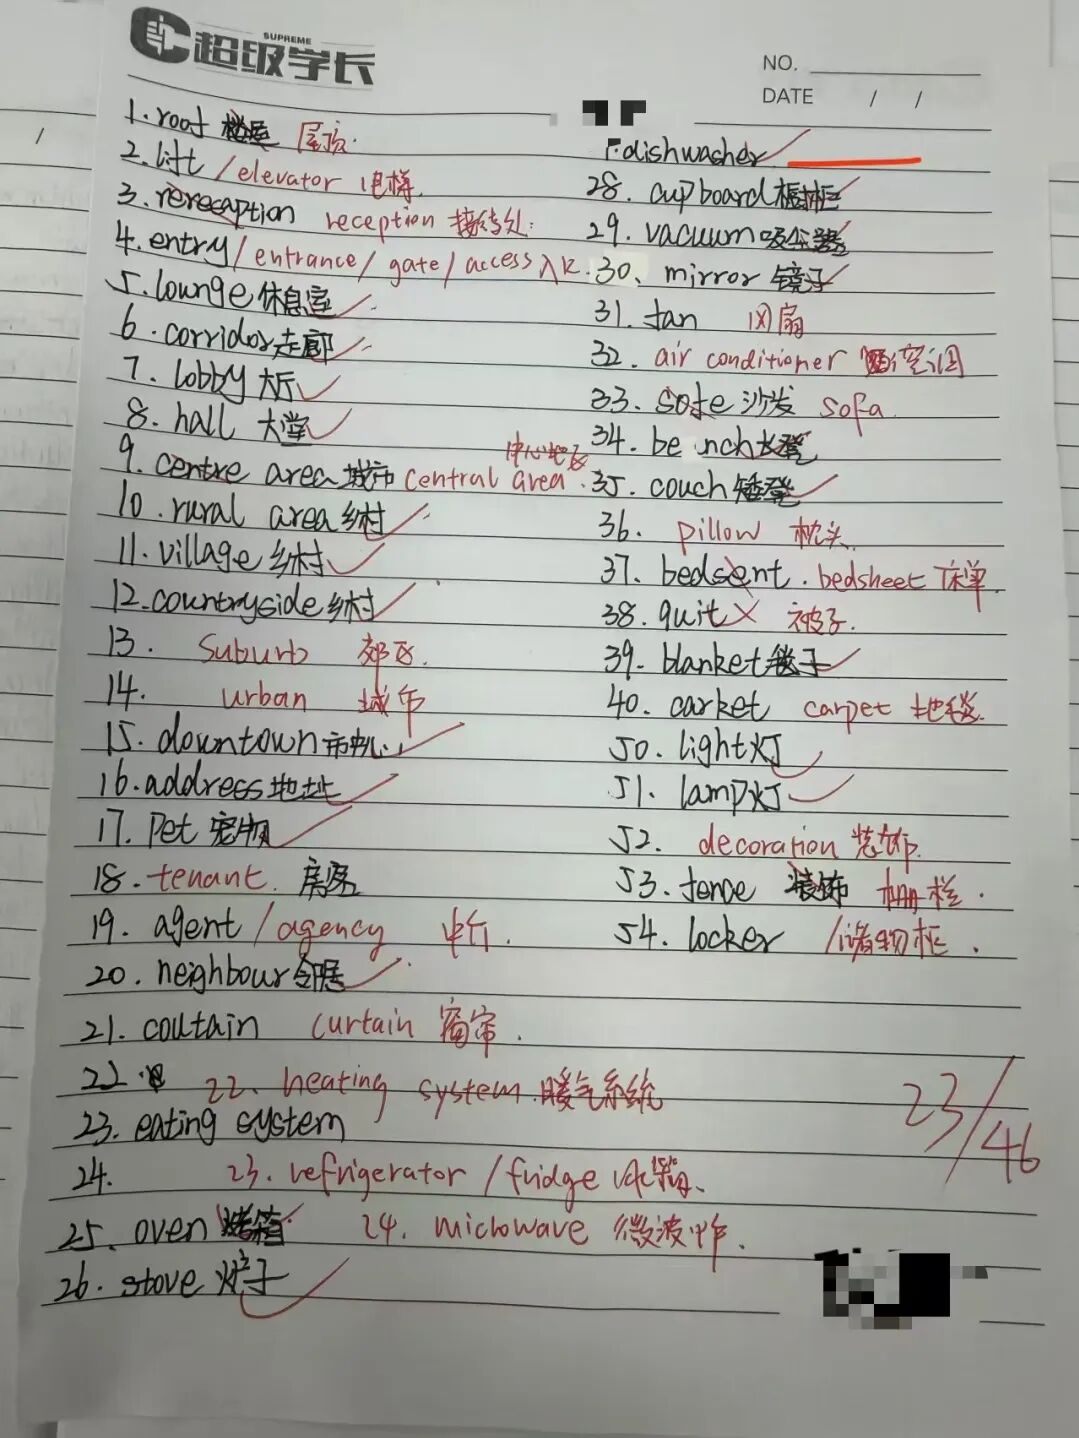 SUPREME
超级学长
NO.
DATE / /
1. roof 屋顶.
2. lift /elevator 电梯.
3. rereception reception 接待处.
4. entry/entrance/gate/access 入口.
5. lounge 休息室
6. corridor 走廊
7. lobby 大厅
8. hall 大堂
9. centre area 城市 central area 中心地区.
10. rural area 乡村
11. village 乡村
12. countryside 乡村
13. suburb 郊区.
14. urban 城市
15. downtown 市中心
16. address 地址
17. pet 宠物
18. tenant. 房客
19. agent /agency 中介.
20. neighbour 邻居
21. coutain curtain 窗帘.
22. 22. heating system. 暖气系统
23. eating system
24. 23. refrigerator /fridge 冰箱.
25. oven 烤箱 24. microwave 微波炉.
26. stove 灶子
dishwasher
28. cupboard 橱柜
29. vacuum 吸尘器
30. mirror 镜子
31. fan 风扇
32. air conditioner 空调
33. sofe 沙发 sofa
34. be nch 长凳
35. couch 矮凳
36. pillow 枕头.
37. bedsent. bedsheet 床单.
38. quit 被子.
39. blanket 毯子
40. carket carpet 地毯.
50. light 灯
51. lamp 灯
52. decoration 装饰.
53. fence 装饰 栅栏.
54. locker /储物柜.
23/46